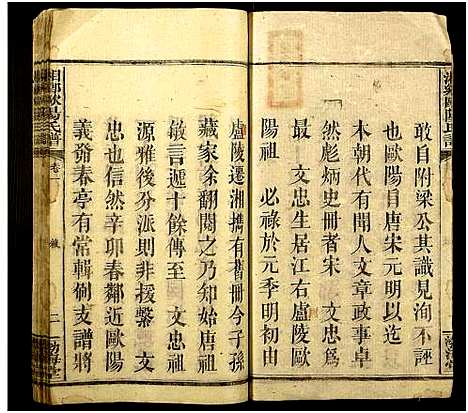 敢自附梁公其識見洵不誣
也歐陽目唐宋元明以迄
本朝代有聞人文章政事卓
然彪炳史冊者宋 文忠為
最 文忠先生居江右盧陵歐
陽祖 必祿於元季明初由
盧陵遷湘攜有舊冊今子孫
藏家余翻閱之知始唐祖
敏言遞十餘傳至 文忠
源雅後分派則非援繫 文
忠也信然辛卯春鄰近歐陽
義發春亭有常輯衡支譜將
湘鄉歐陽氏譜
卷
二